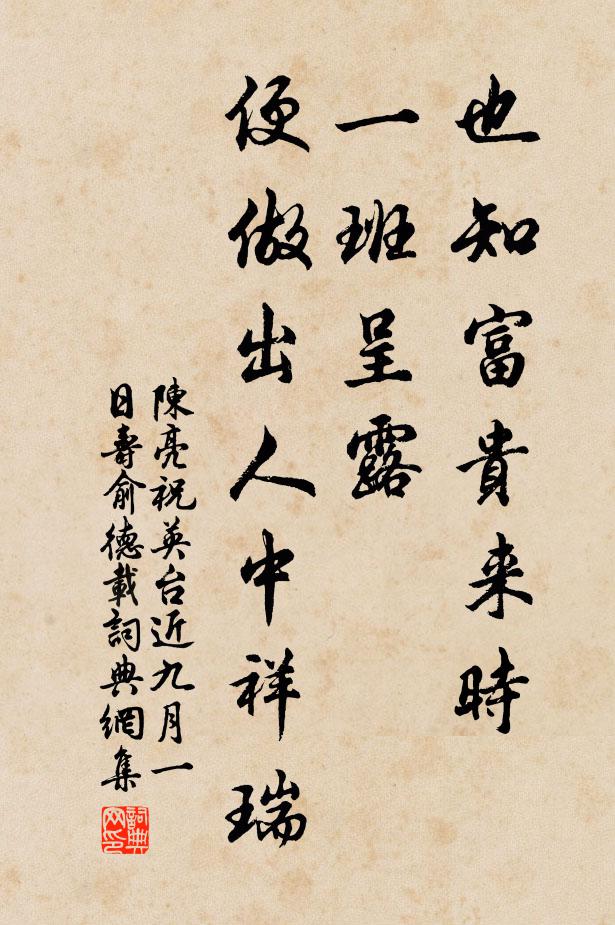 也知富貴来時
一班呈露
便做出人中祥瑞
陳亮祝英台近九月一
日壽俞德載詞典網集
詞典
网印